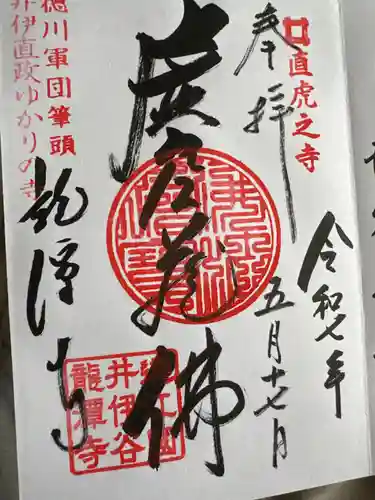 直虎之寺
奉拝
令和七年
五月十七日
虚空蔵佛
徳川軍団筆頭
井伊直政ゆかりの寺
龍潭寺
井伊谷
龍潭寺